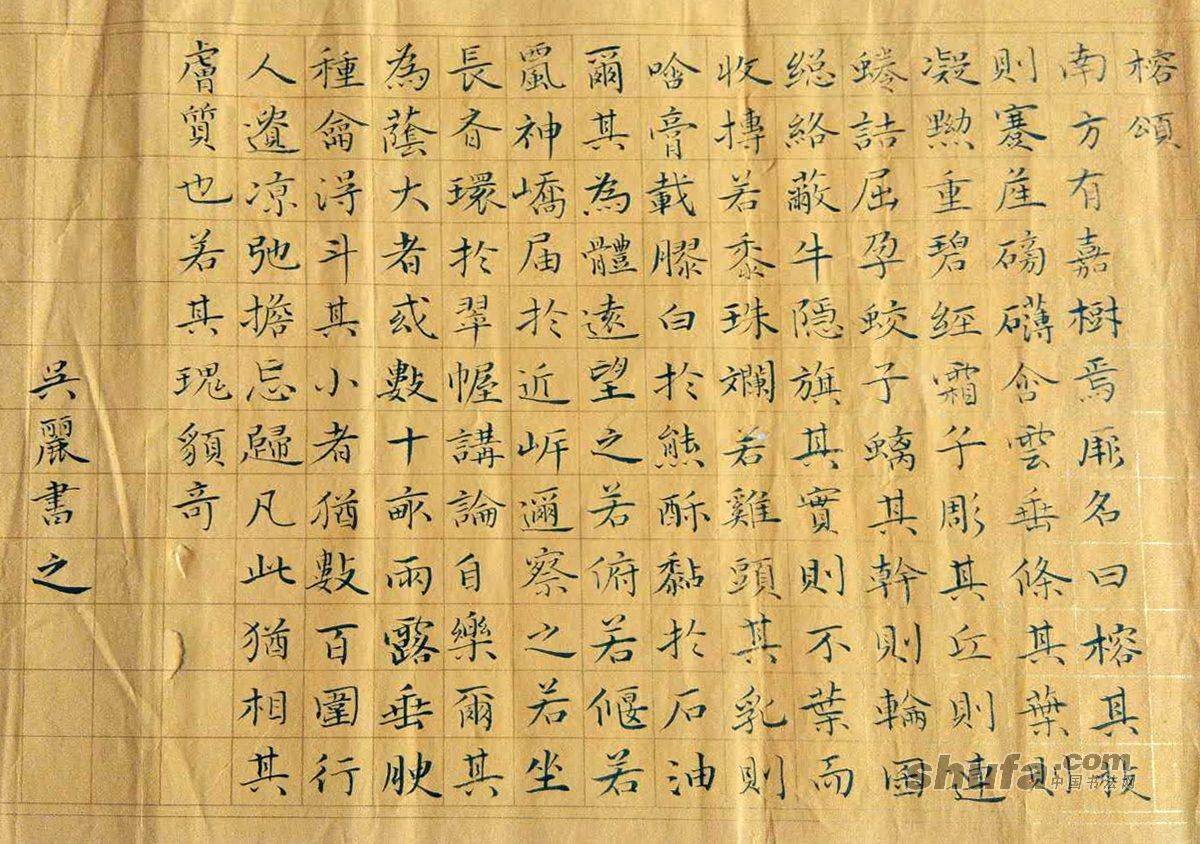 榕頌
南方有嘉樹焉厥名曰榕其枝
則蹇產磅礴含雲垂條其葉則
凝黝重碧經霜彫其丘則連
蜷詰屈孕蛟子螭其幹則輪囷
總絡蔽牛隱旗其實則不葉而
收摶若黍珠斕若雞頭其乳則
唅膏載膠白於熊酥黏於石油
爾其為體遠望之若俯若偃若
神嶠届於近岸邇察之若坐
長環於翠幄講論自樂爾其
為蔭大者或數十畝雨露垂腴
種龠浔斗其小者猶數百圍行
人遺凉弛擔忘歸凡此猶相其
膚質也若其瑰貌奇
吳麗書之
shufa.com
中国书法网